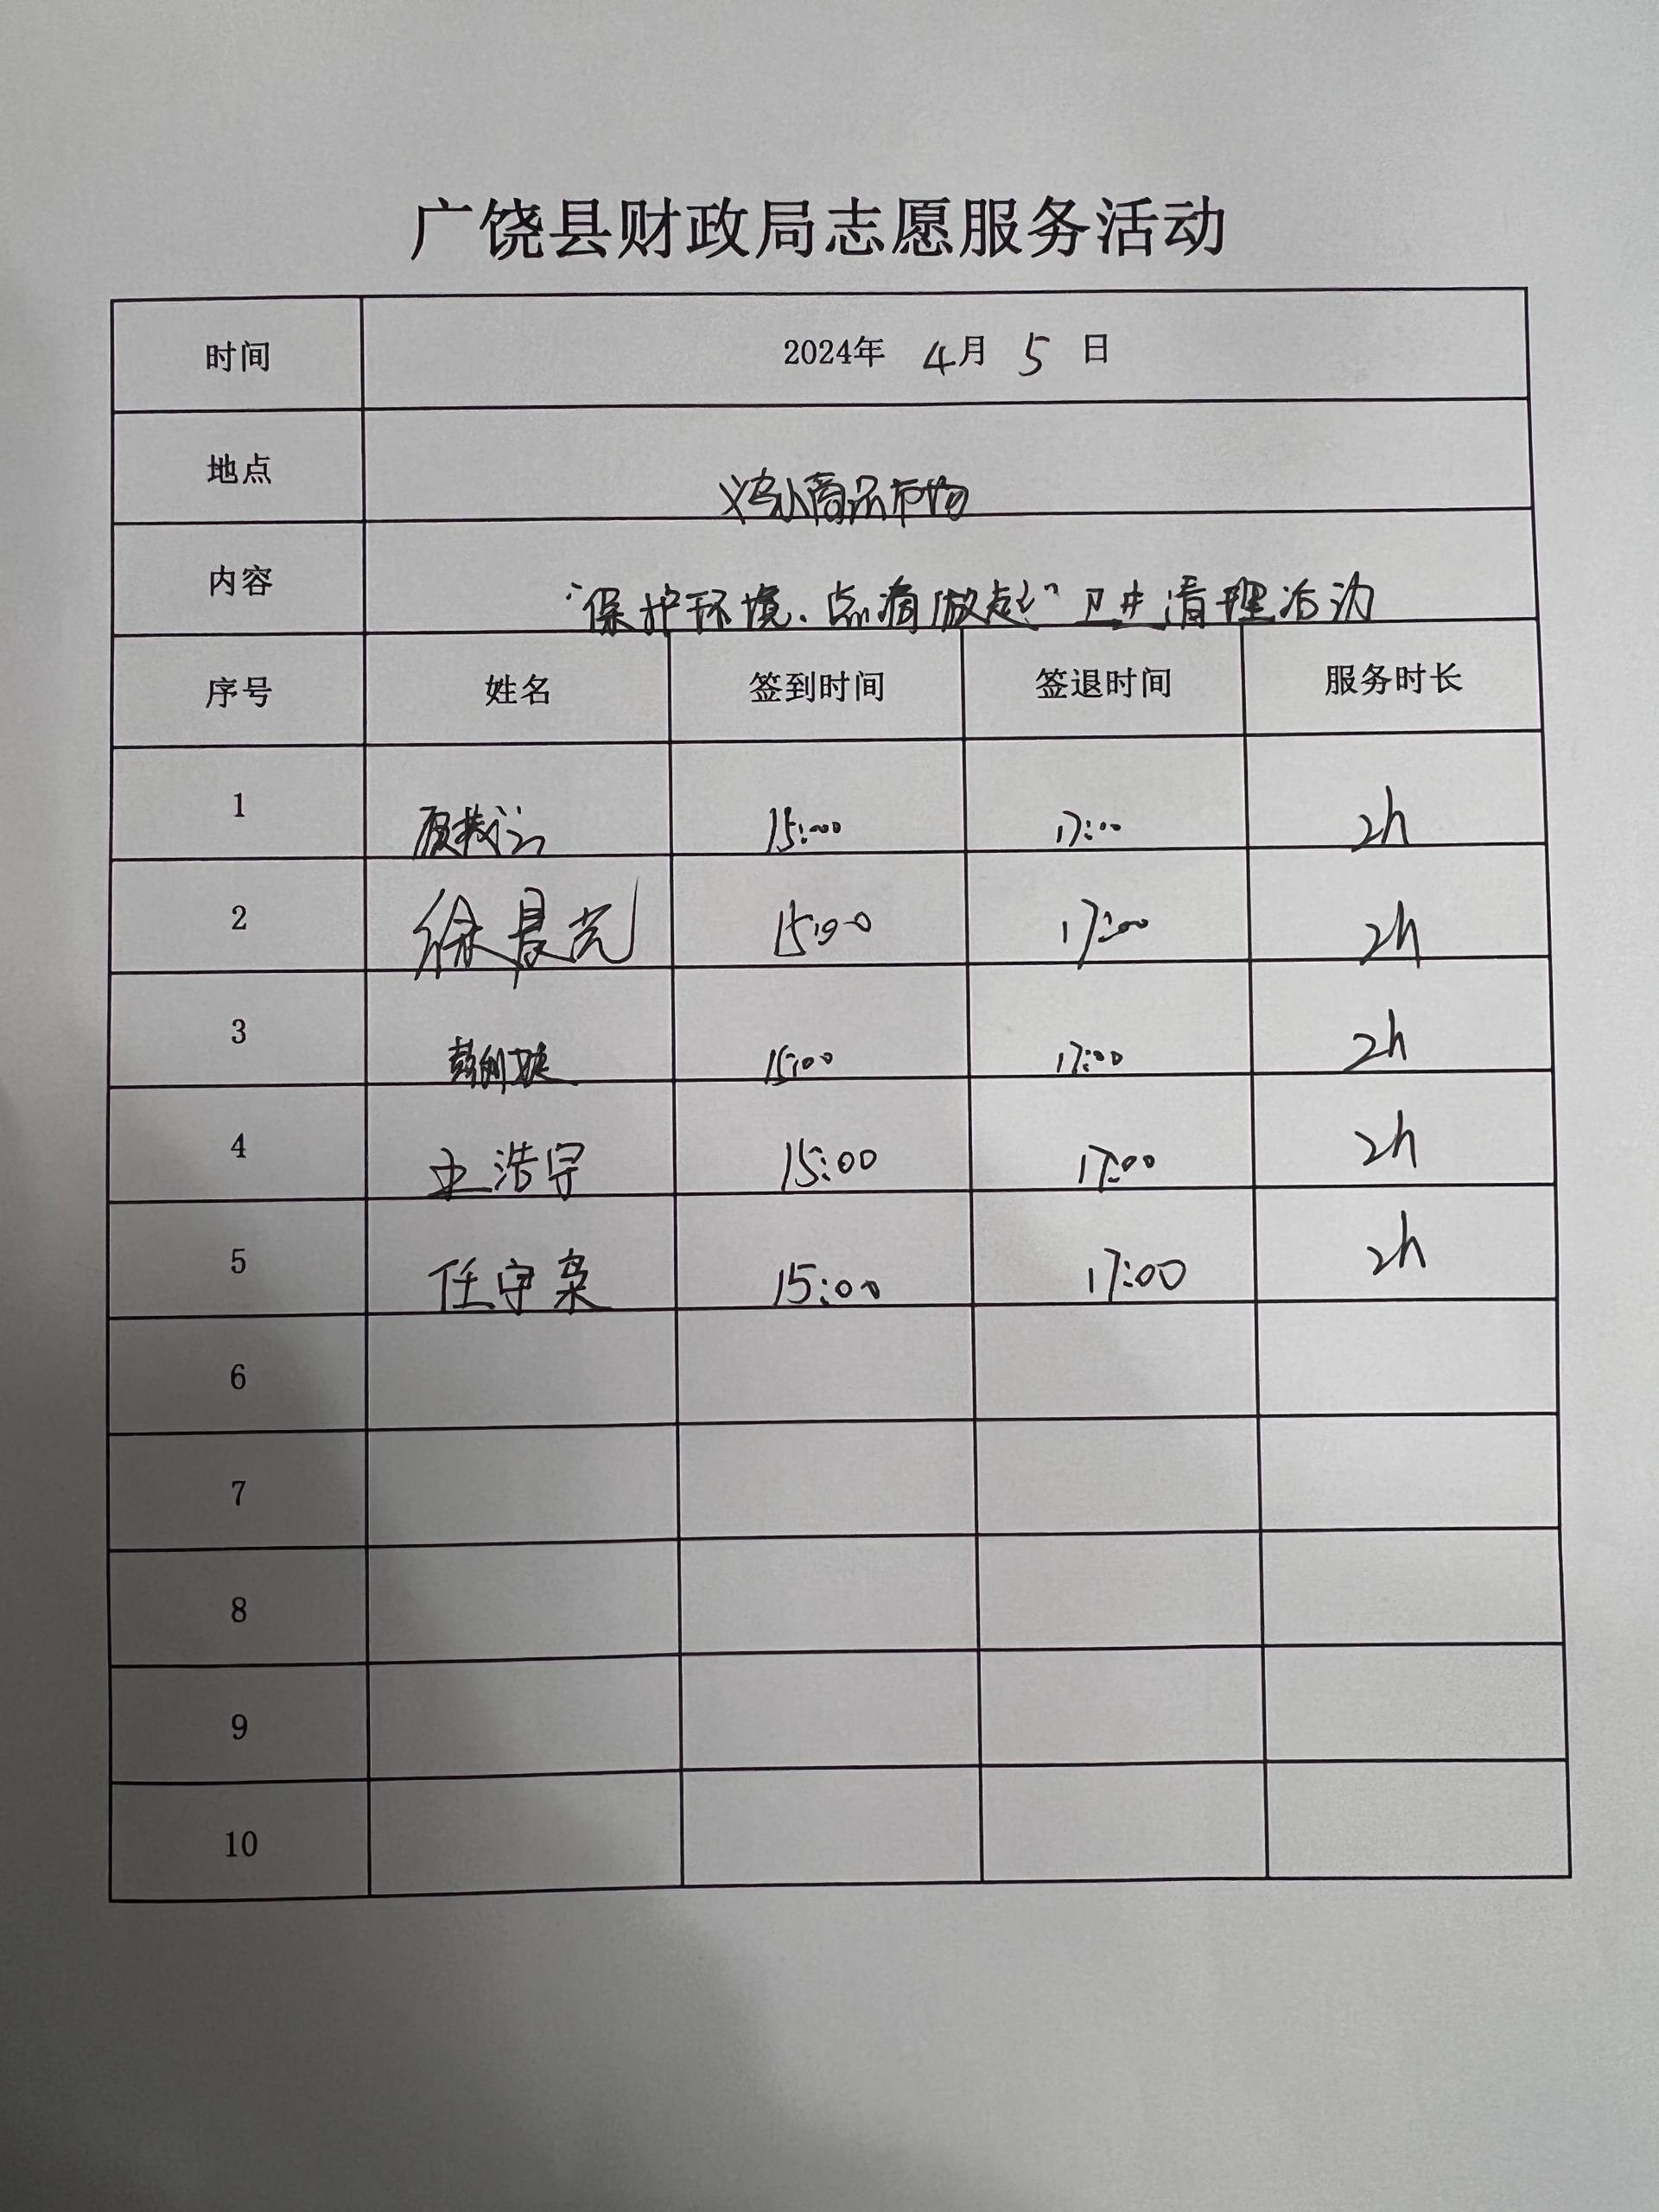 广饶县财政局志愿服务活动
时间 2024年 4月 5 日
地点 义乌小商品市场
内容 “保护环境、点滴做起”卫生清理活动
序号 姓名 签到时间 签退时间 服务时长
1 15:00 17:00 2h
2 徐晨光 15:00 17:00 2h
3 15:00 17:00 2h
4 王浩宇 15:00 17:00 2h
5 任守枭 15:00 17:00 2h
6
7
8
9
10